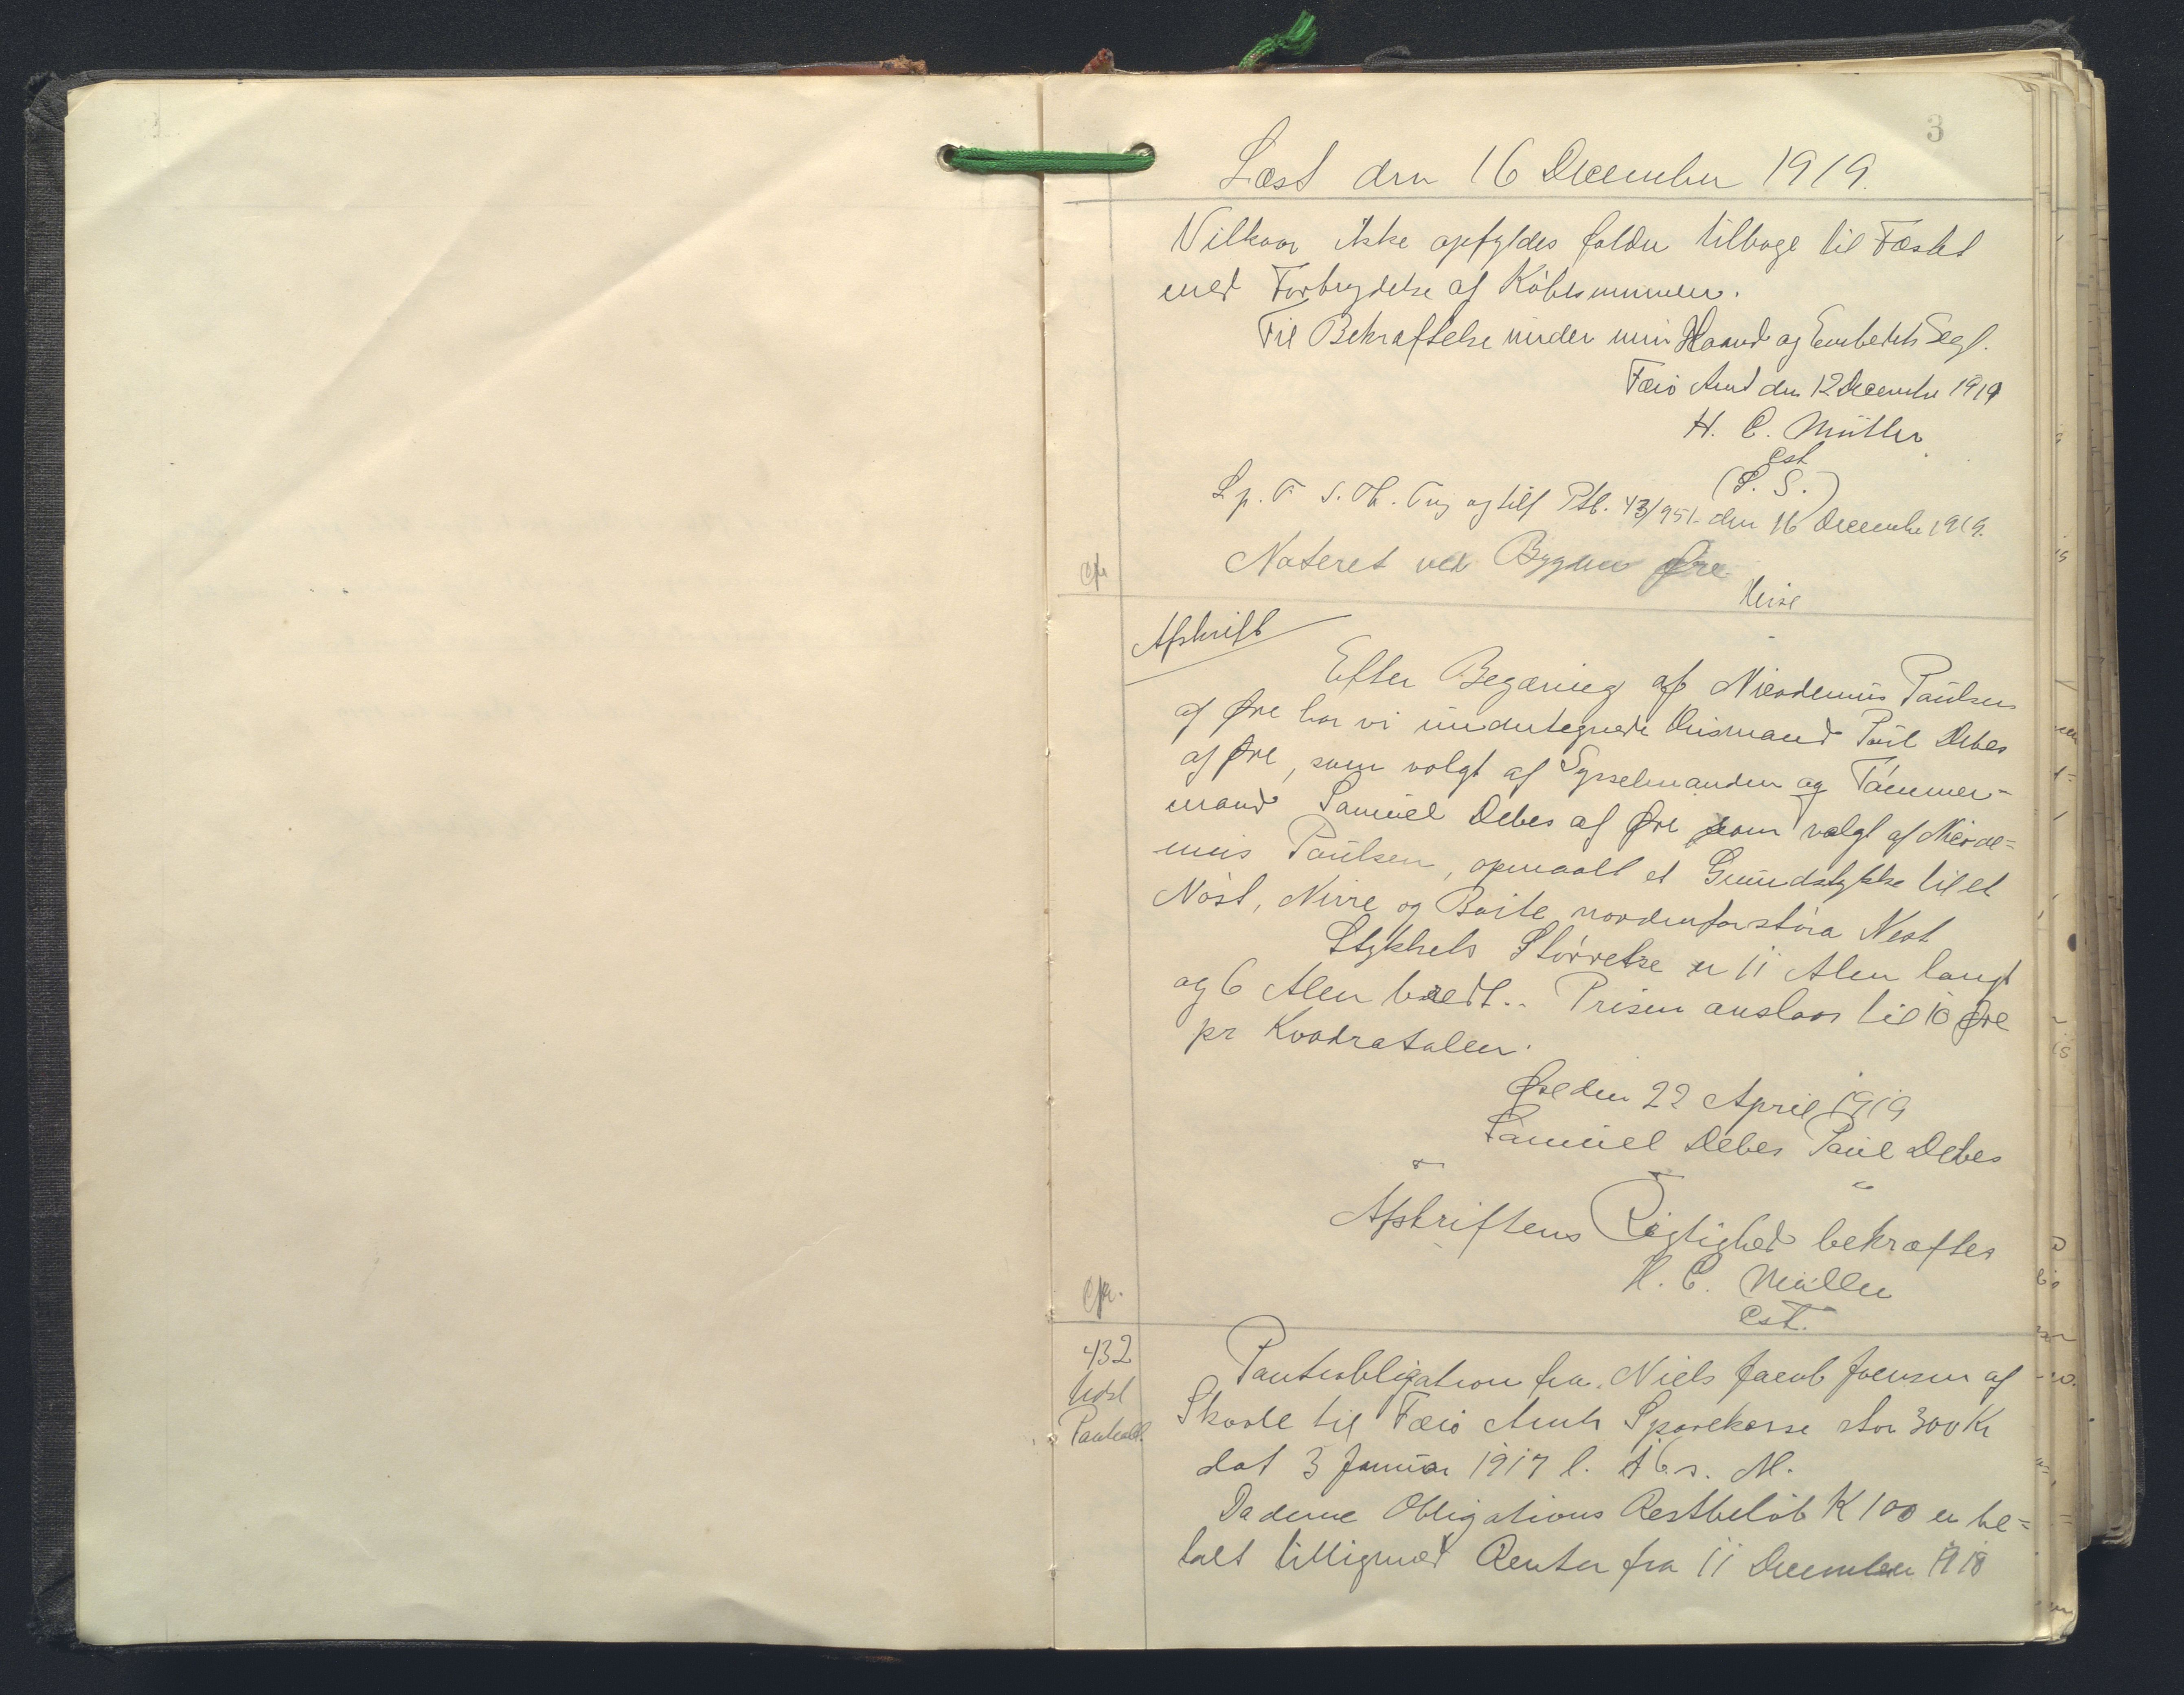 3
Læst den 16 December 1919.
Vilkaar ikke opfyldes falder tilbage til Fæstet
med Forbrydelse af Købesummen.
Til Bekræftelse under min Haand og Embedets Segl.
Færø Amt den 12 December 1919
H. C. Müller
cst
(L. S.)
L p. F. S. Th. Ting og tilf Ptb. 43/951 den 16 December 1919.
Noteret ved Bygden Øre.
cfr
Afskrift
Efter Begæring af Nicodemus Paulsen
af Øre har vi undertegnede Huismand Poul Debes
af Øre, som valgt af Sysselmanden og Tømmer-
mand Samuel Debes af Øre som valgt af Nicode=
mus Paulsen, opmaalt et Grundstykke til et
Nøst, Nirre og Baite nordenfor stóra Nest
Stykkets Størrelse er 11 Alen langt
og 6 Alen bredt.. Prisen anslaas til 10 Øre
pr Kvadratalen.
Øre den 22 April 1919
Samuel Debes Paul Debes
Afskriftens Rigtighed bekræftes
H. C. Müller
cst.
cfr.
432
Udsl
Pantobl.
Pantobligation fra Niels Jacob Joensen af
Skaale til Færø Amts Sparekasse stor 300 Kr
dat 3 Januar 1917 l. 16 s. M.
Da denne Obligations Restbeløb K 100 er be=
talt tilligemed Renter fra 11 December 1918